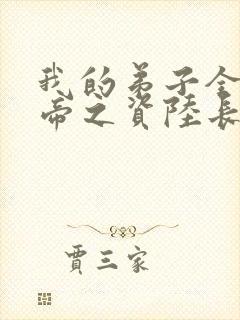 我的弟子全
帝之資陸長
賈三家